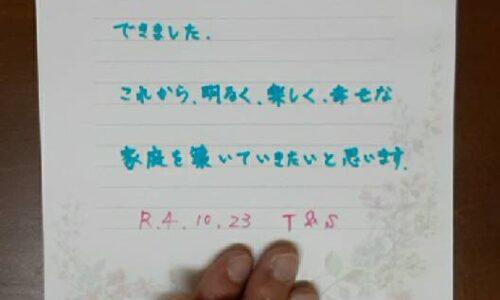 できました.
これから、明るく、楽しく、幸せな
家庭を築いていきたいと思います.
R.4.10.23 T&S